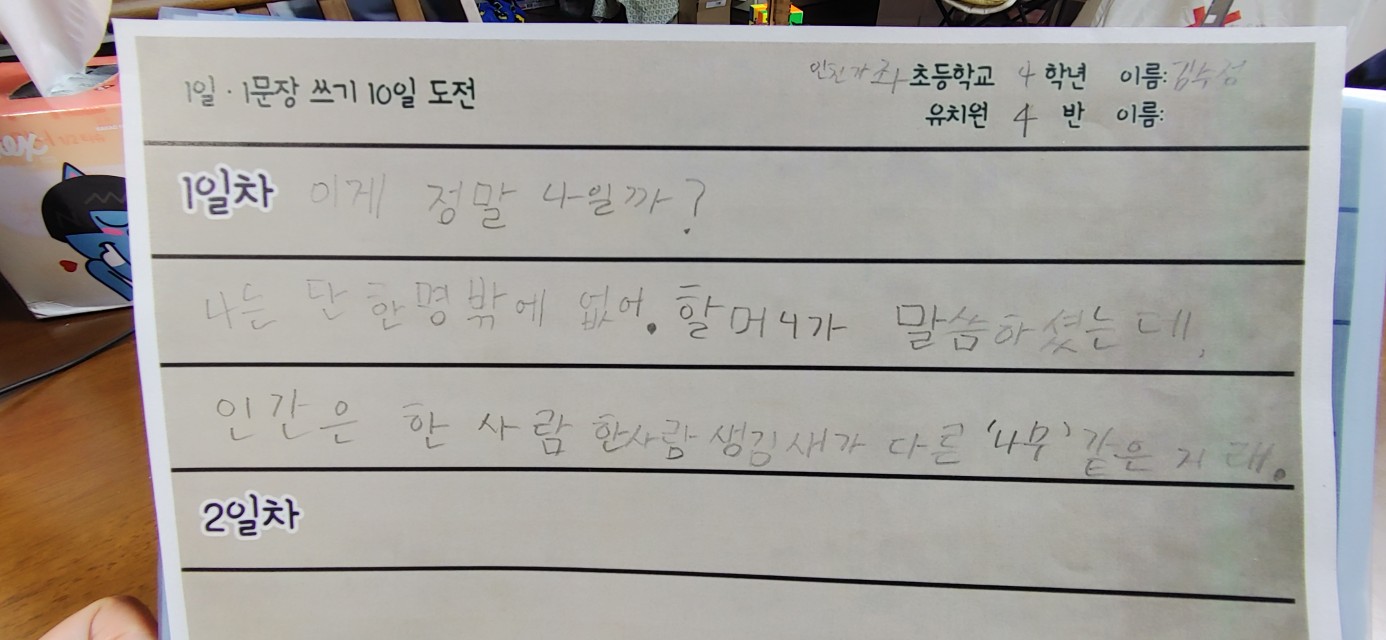 1일·1문장 쓰기 10일 도전
인천가좌초등학교 4학년 이름:
유치원 4 반 이름:
1일차 이게 정말 나일까?
나는 단 한명밖에 없어. 할머니가 말씀하셨는데,
인간은 한 사람 한사람 생김새가 다른 '나무' 같은 거래.
2일차